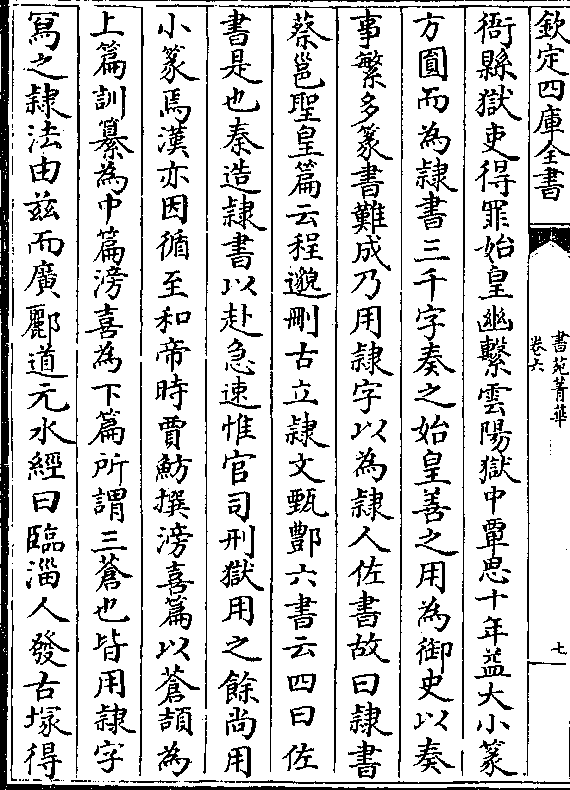 欽定四庫全書
書苑菁華
卷六
七
衙縣獄吏得罪始皇幽繫雲陽獄中覃思十年益大小篆
方圓而為隷書三千字奏之始皇善之用為御史以奏
事繁多篆書難成乃用隷字以為隷人佐書故曰隷書
蔡邕聖皇篇云程邈刪古立隷文甄酆六書云四曰佐
書是也秦造隷書以赴急速惟官司刑獄用之餘尚用
小篆焉漢亦因循至和帝時賈魴撰滂喜篇以蒼頡為
上篇訓纂為中篇滂喜為下篇所謂三蒼也皆用隷字
冩之隷法由兹而廣酈道元水經曰臨淄人發古塚得